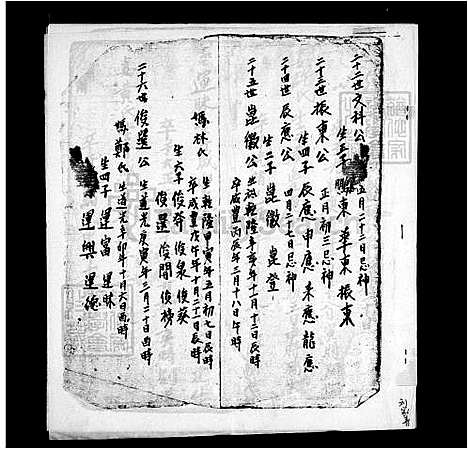 二十二世文科公 五月二十二日忌神
生五子 興東 華東 振東
二十三世振東公 正月初三忌神
生四子 辰應 申應 未應 龍應
二十四世辰應公 四月二十七日忌神
生二子 崑徽 崑登
二十五世崑徽公 生於乾隆辛亥年十一月十二日辰時
卒咸豐丙辰年二月十八日午時
媽林氏 生乾隆甲寅年五月初七日辰時
卒咸豐戊午年十月二十二日辰時
生六子 俊奇 俊泉 俊葵
俊選 俊開 俊榜
二十六世俊選公 生道光庚寅年三月二十日酉時
媽鄭氏 生道光辛卯年十月六日酉時
生四子 運富 運昧
運興 運德